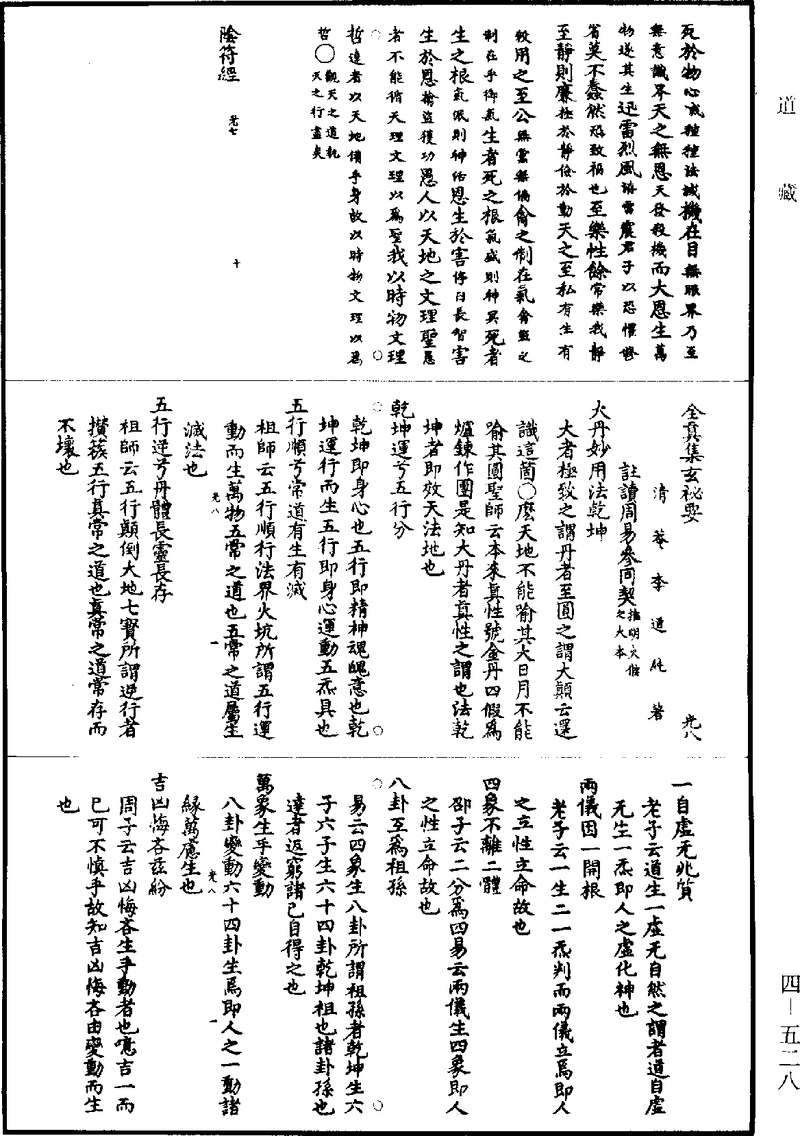 道藏
死於物心滅種種法滅機在目無眼界乃至
無意識界天之無恩天發殺機而大恩生萬
物遂其生迅雷烈風洊雷震君子以恐懼修
省莫不蠢然恐致福也至樂性餘常樂我靜
至靜則廉極於靜倍於動天之至私有生有
殺用之至公無黨無偏禽之制在氣禽獸之
制在乎御氣生者死之根氣盛則神昊死者
生之根氣泯則神活恩生於害停日長智害
生於恩搶盜獲功愚人以天地之文理聖愚
者不能循天理文理以爲聖我以時物文理
哲達者以天地備乎身故以時物文理以爲
哲〇觀天之道執
天之行盡矣
陰符經 光七 十
全真集玄祕要 光八
清菴李道純著
註讀周易參同契推明火候
之大本
火丹妙用法乾坤
大者極致之謂丹者至圓之謂大顛云還
識這箇〇麼天地不能喻其大日月不能
喻其圓聖師云本來真性號金丹四假爲
爐鍊作團是知大丹者真性之謂也法乾
坤者即效天法地也
乾坤運兮五行分
乾坤即身心也五行即精神魂魄意也乾
坤運行而生五行即身心運動五炁具也
五行順兮常道有生有滅
祖師云五行順行法界火坑所謂五行運
動而生萬物五常之道也五常之道屬生
滅法也
光八 一
五行逆兮丹體長靈長存
祖師云五行顛倒大地七寶所謂逆行者
攢簇五行真常之道也真常之道常存而
不壞也
一自虛无兆質
老子云道生一虛无自然之謂者道自虛
无生一炁即人之虛化神也
兩儀因一開根
老子云一生二一炁判而兩儀立焉即人
之立性立命故也
四象不離二體
邵子云二分爲四易云兩儀生四象即人
之性立命故也
八卦互爲祖孫
易云四象生八卦所謂祖孫者乾坤生六
子六子生六十四卦乾坤祖也諸卦孫也
達者返窮諸己自得之也
萬象生乎變動
八卦變動六十四卦生焉即人之一動諸
緣萬慮生也
光八 一
吉凶悔吝茲紛
周子云吉凶悔吝生乎動者也噫吉一而
已可不慎乎故知吉凶悔吝由變動而生
也
四—五二八